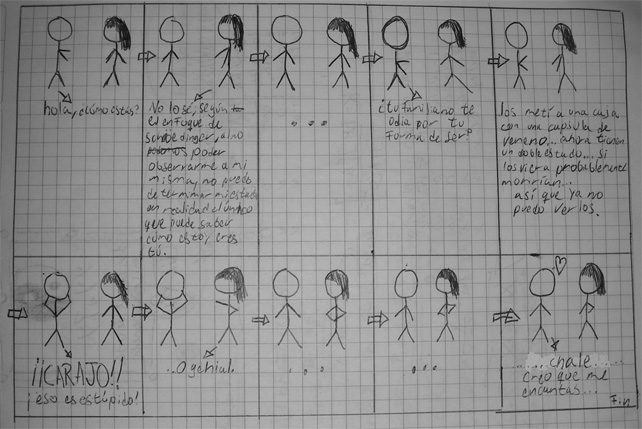 hola, ¿cómo estás?
No lo sé, según
el enfoque de
schödinger, al no
poder
observarme a mi
misma, no puedo
determinar mi estado
en realidad el único
que puede saber
cómo estoy, eres
tú.
...
¿tu familia no te
odia por tu
forma de ser?
los metí a una caja
con una capsula de
veneno... ahora tienen
un doble estado... si
los viera probablemente
morirían...
así que ya no
puedo verlos.
¡¡CARAJO!!
¡eso es estúpido!
..O genial.
...
...
...chale...
creo que me
encantas...
Fin